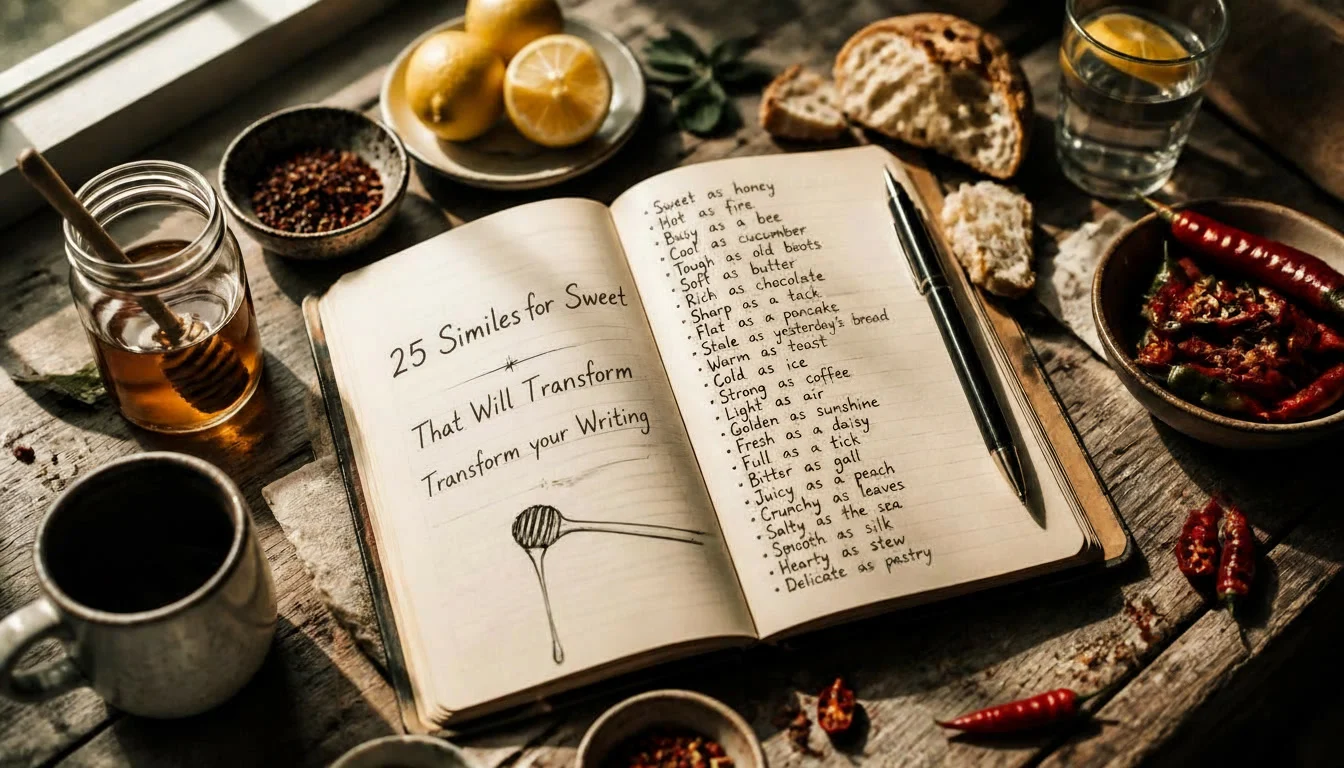 25 Similes for Sweet
That Will Transform
Transform your Writing
• Sweet as honey
• Hot as fire
• Busy as a bee
• Cool as cucumber
• Tough as old boots
• Soft as butter
• Rich as chocolate
• Sharp as a tack
• Flat as a pancake
• Stale as yesterday's bread
• Warm as toast
• Cold as ice
• Strong as coffee
• Light as air
• Golden as sunshine
• Fresh as a daisy
• Full as a tick
• Bitter as gall
• Juicy as a peach
• Crunchy as leaves
• Salty as the sea
• Smooth as silk
• Hearty as stew
• Delicate as pastry